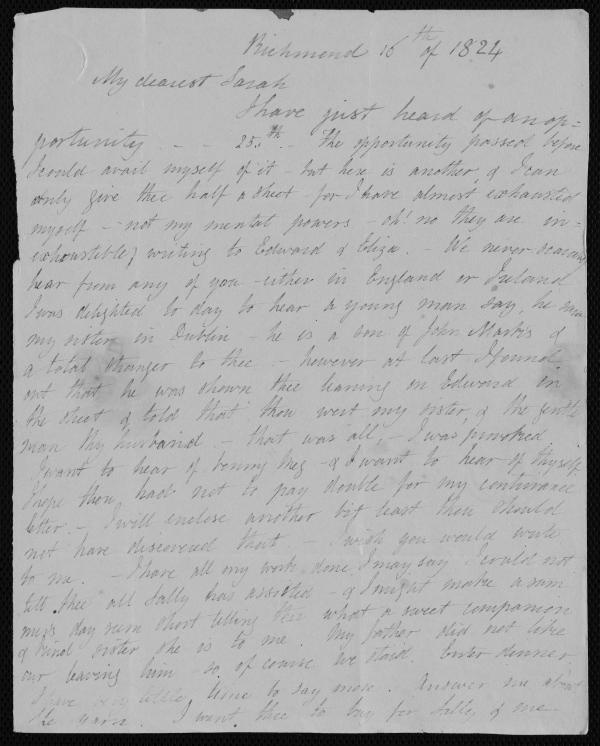 Richmond 16th of 1824
My dearest Sarah
I have just heard of an op=
portunity - - - 25th - The opportunity passed before
I could avail myself of it - but here is another & I can
only give thee half a sheet - for I have almost exhausted
myself - (not my mental powers - oh! no they are in=
exhaustible) writing to Edward & Eliza. - We never scarcely
hear from any of you - either in England or Ireland
I was delighted to day to hear a young man say, he saw
my sister in Dublin - he is a son of John Marks &
a total stranger to thee - however at last I found
out that he was shown thee leaning on Edward in
the street & told that thou wert my sister, & the gentle
man thy husband - that was all, - I was provoked.
I want to hear of bonny Meg - & I want to hear of thyself
I hope thou had not to pay double for my contrivance
letter. - I will enclose another bit least thou should
not have discovered that - I wish you would write
to me. - I have all my work done I may say I could not
tell thee all Sally has assisted - & I might make a sum
mer's day seem short telling thee what a sweet companion
& kind sister she is to me. My father did not like
our leaving him - so of course we staid. Enter dinner
I have very little time to say more. Answer me about
the yarn. I want thee to buy for Sally & me